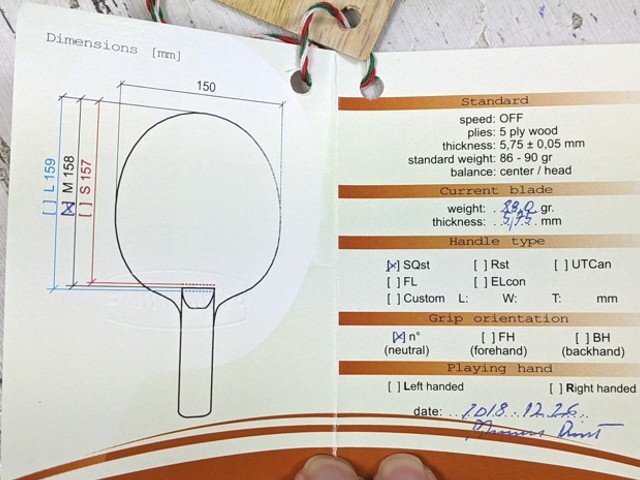 Dimensions [mm]
150
[ ] L 159
[x] M 158
[ ] S 157
Standard
speed: OFF
plies: 5 ply wood
thickness: 5,75 ± 0,05 mm
standard weight: 86 - 90 gr
balance: center / head
Current blade
weight: 88,0 gr.
thickness: 5,75 mm
Handle type
[x] SQst [ ] Rst [ ] UTCan
[ ] FL [ ] ELcon
[ ] Custom L: W: T: mm
Grip orientation
[x] n° [ ] FH [ ] BH
(neutral) (forehand) (backhand)
Playing hand
[ ] Left handed [ ] Right handed
date: 2018.12.26.